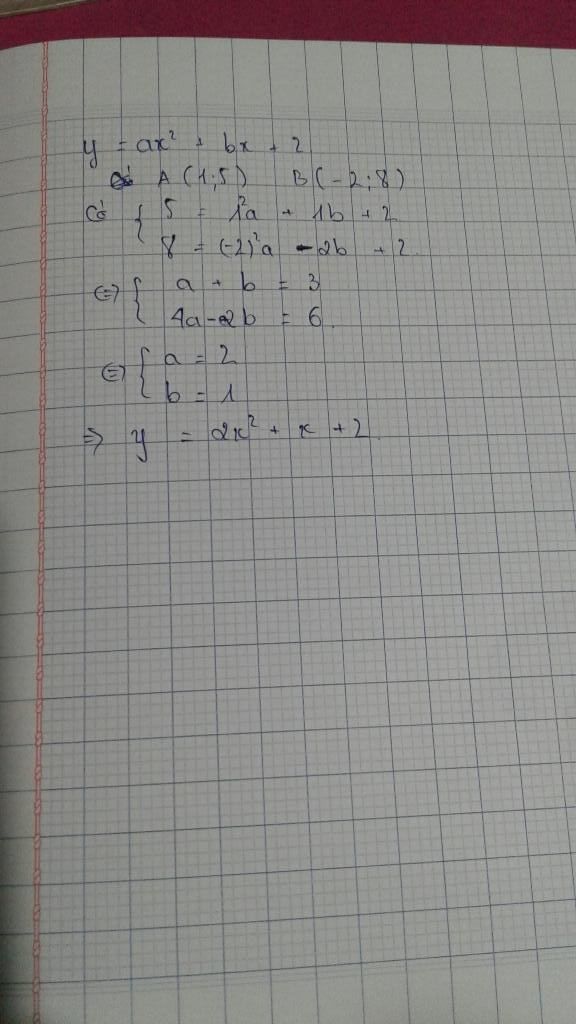 y = ax² + bx + 2
A (1;5) B(-2;8)
Có { 5 = 1²a + 1b + 2
8 = (-2)²a - 2b + 2
⇔ { a + b = 3
4a - 2b = 6
⇔ { a = 2
b = 1
⇒ y = 2x² + x + 2